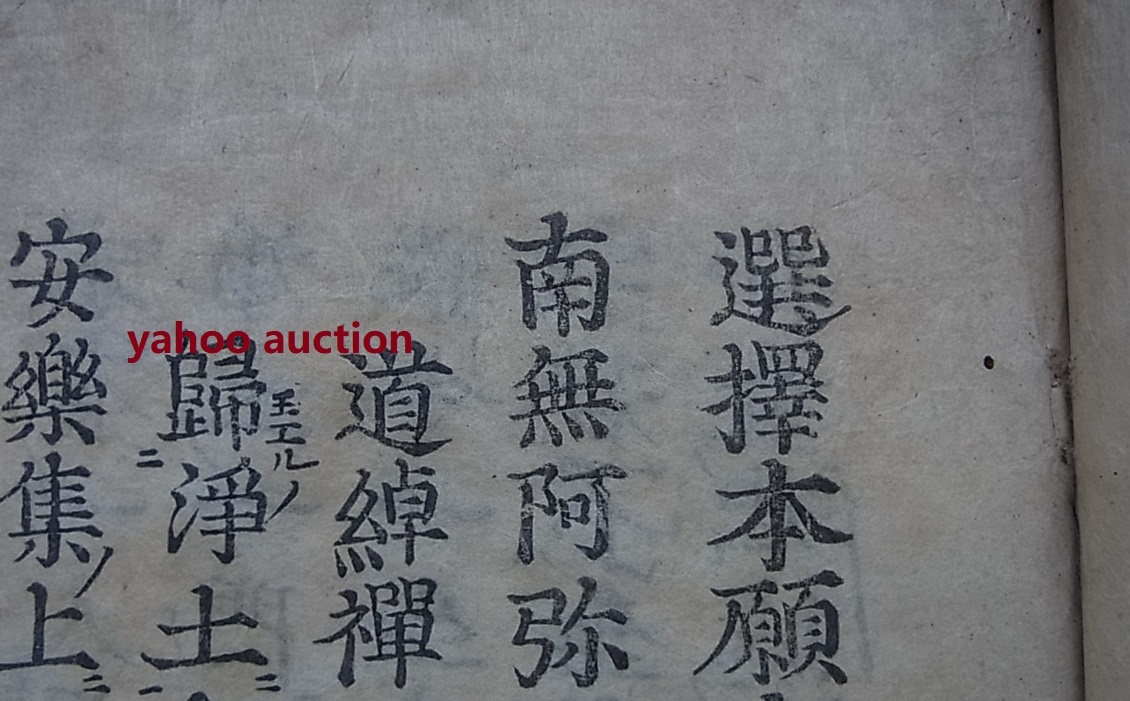 選擇本願
南無阿弥
道綽禪
歸淨土
安樂集上
yahoo auction